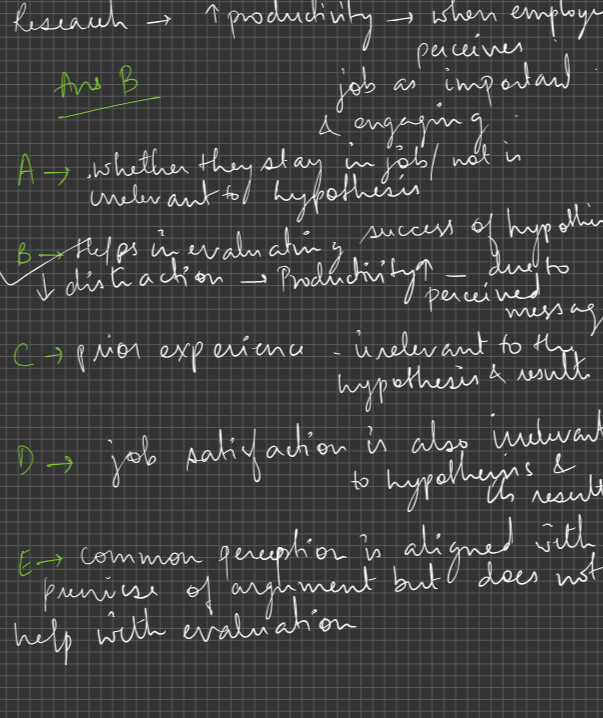 Research → ↑ productivity → when employe
perceives
Ans B
job as important
& engaging
A → whether they stay in job/not is
irrelevant to hypothesis
B → Helps in evaluating success of hypothe
↓ distraction → Productivity↑ – due to
perceived
messag
C → prior experience - irrelevant to the
hypothesis & result
D → job satisfaction is also irrelevant
to hypothesis &
its result
E → common perception is aligned with
premise of argument but does not
help with evaluation